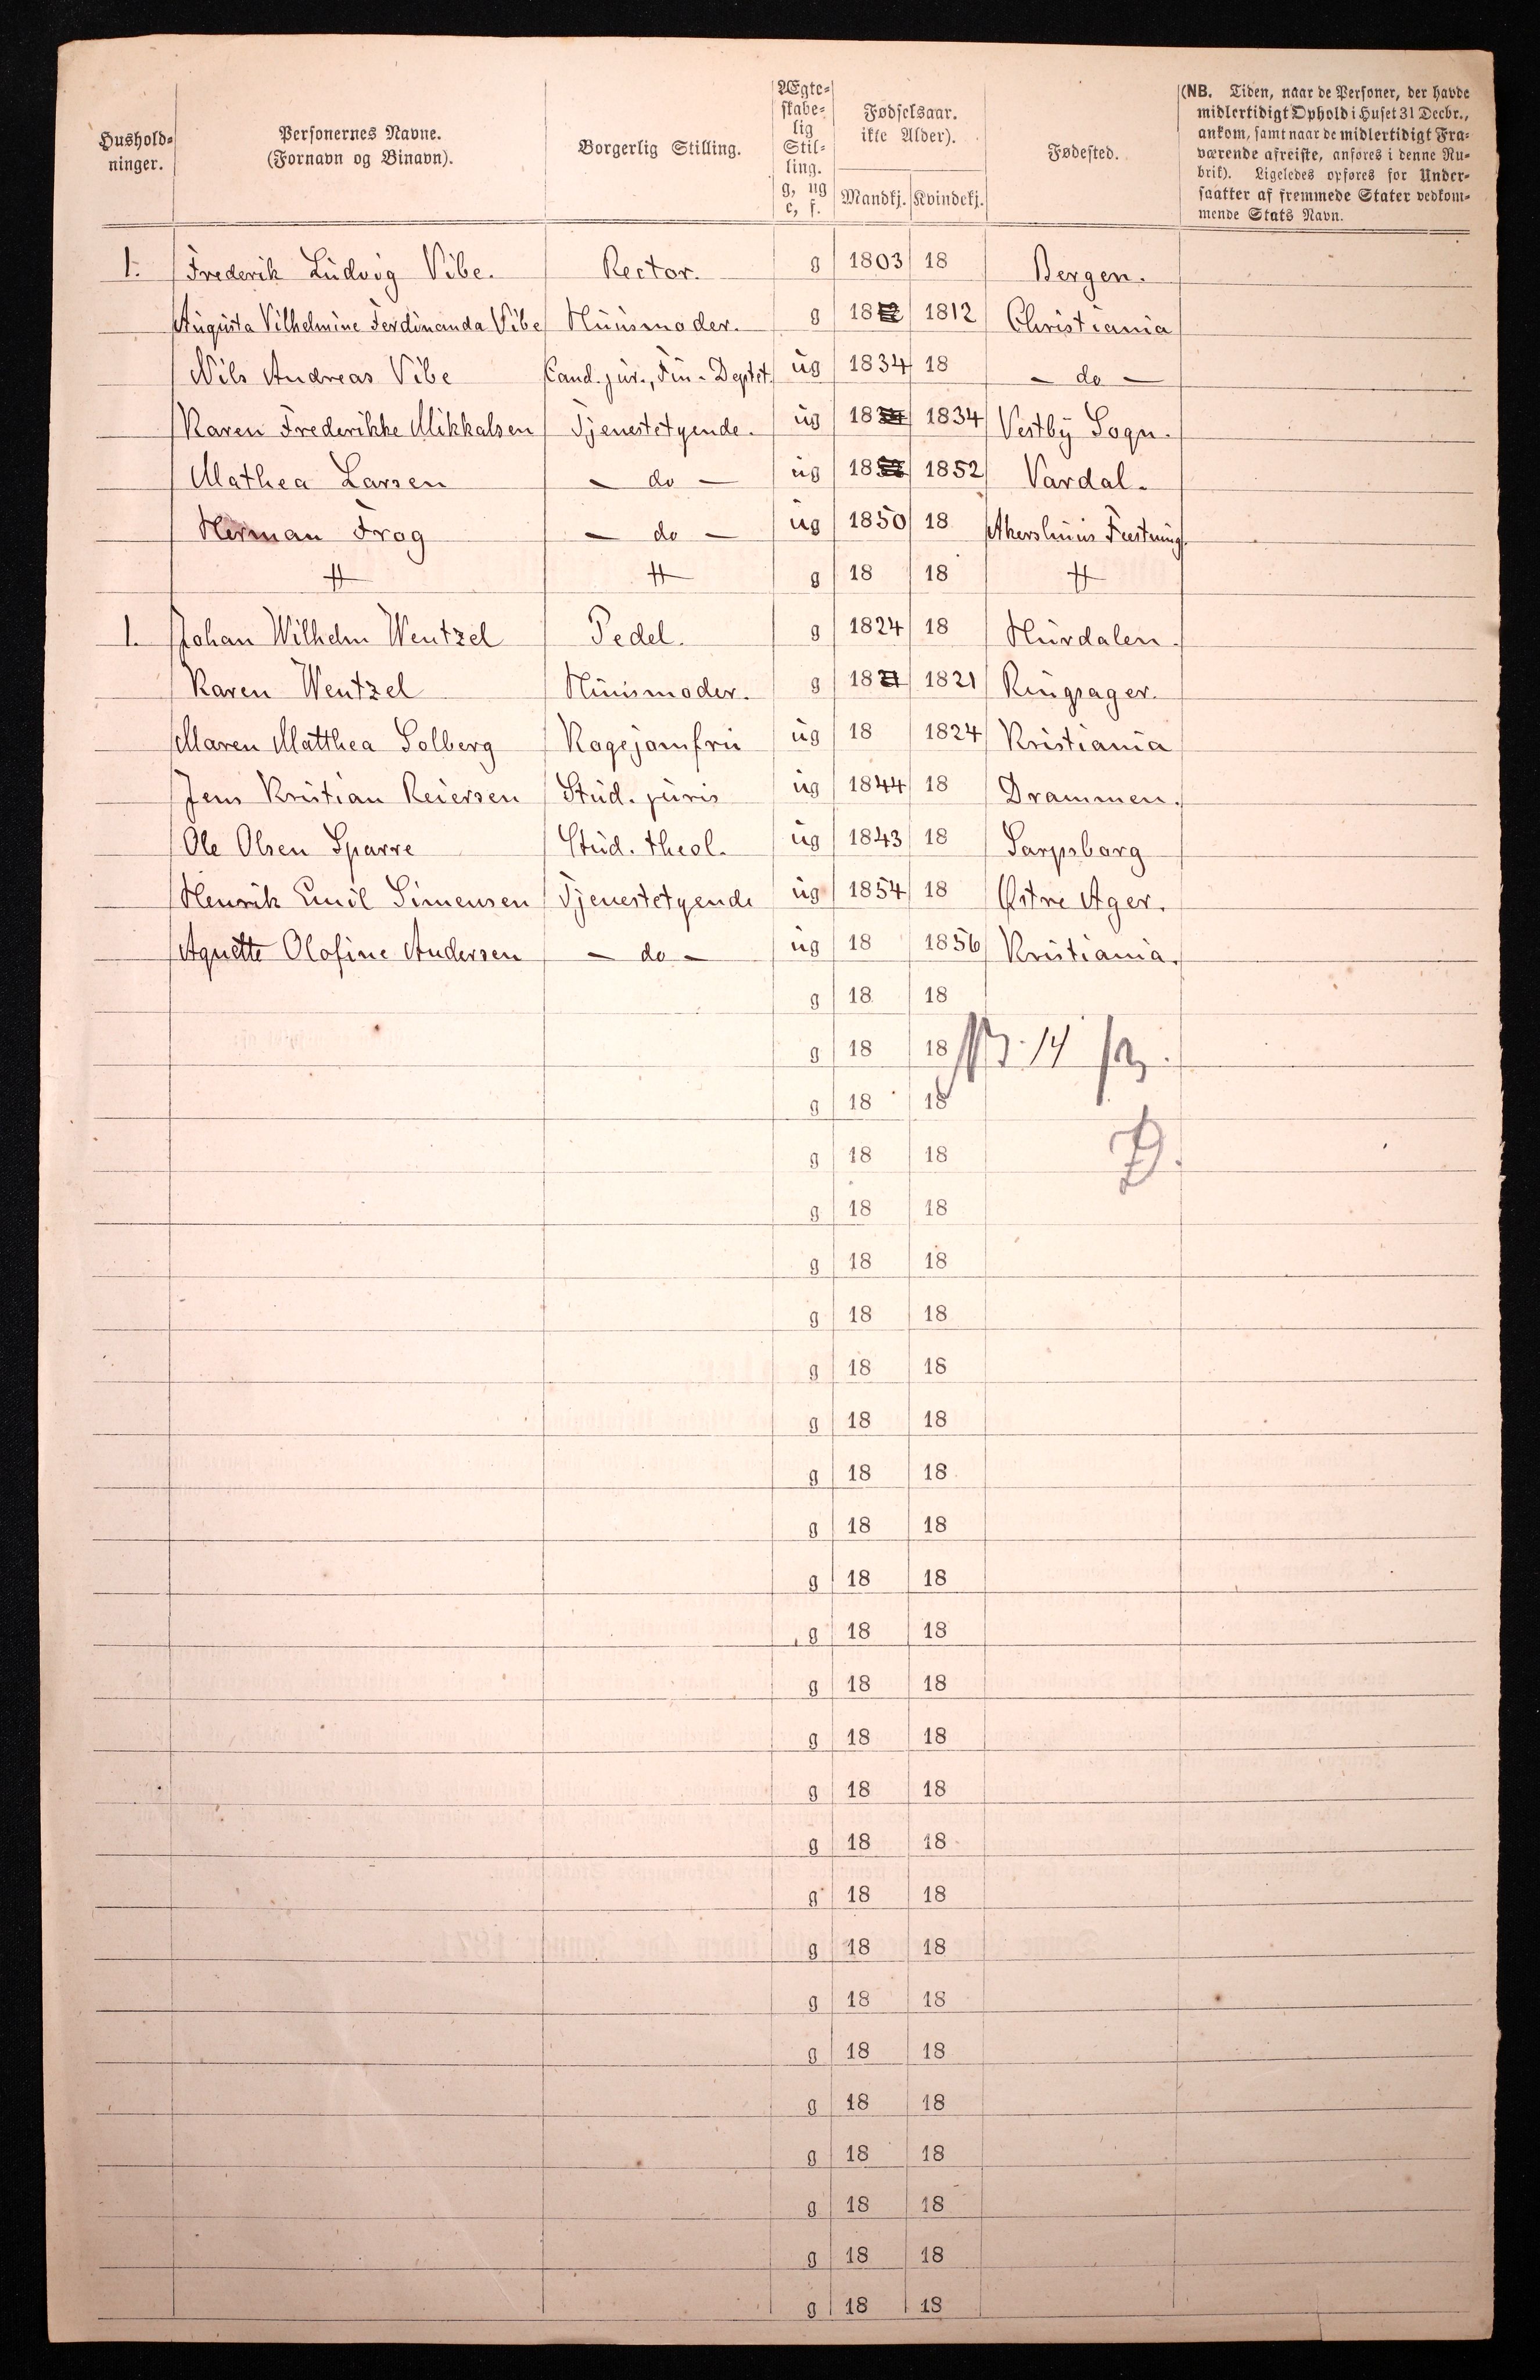 Hushold-
ninger.
Personernes Navne.
(Fornavn og Binavn).
Borgerlig Stilling.
Ægte-
skabe-
lig
Stil-
ling.
g, ug
e, f.
Fødselsaar.
ikke Alder).
Mandkj. Kvindekj.
Fødested.
(NB. Tiden, naar de Personer, der havde
midlertidigt Ophold i Huset 31 Decbr.,
ankom, samt naar de midlertidigt Fra-
værende afreiste, anføres i denne Ru-
brik). Ligeledes opføres for Under-
saatter af fremmede Stater vedkom-
mende Stats Navn.
1. Frederik Ludvig Vibe. Rector. g 1803 18 Bergen.
Augusta Vilhelmine Ferdinanda Vibe Huusmoder. g 1812 1812 Christiania
Nils Andreas Vibe Cand. jur., Fin-Deptet. ug 1834 18 — do —
Karen Frederikke Mikkalsen Tjenestetyende. ug 1834 1834 Vestby Sogn.
Mathea Larsen — do — ug 1852 1852 Vardal.
Herman Frog — do — ug 1850 18 Akershuus Fæstning.
g 18 18
1. Johan Wilhelm Wentzel Pedel. g 1824 18 Hurdalen.
Karen Wentzel Huusmoder. g 1821 1821 Ringsager.
Maren Matthea Solberg Kogejomfru ug 18 1824 Kristiania
Jens Kristian Reiersen Stud. juris ug 1844 18 Drammen.
Ole Olsen Sparre Stud. theol. ug 1843 18 Sarpsborg
Henrik Emil Simensen Tjenestetyende ug 1854 18 Østre Ager.
Agnette Olofine Andersen — do — ug 18 1856 Kristiania.
g 18 18
g 18 18 14
g 18 18
g 18 18
g 18 18
g 18 18
g 18 18
g 18 18
g 18 18
g 18 18
g 18 18
g 18 18
g 18 18
g 18 18
g 18 18
g 18 18
g 18 18
g 18 18
g 18 18
g 18 18
g 18 18
g 18 18
g 18 18
g 18 18
g 18 18
g 18 18